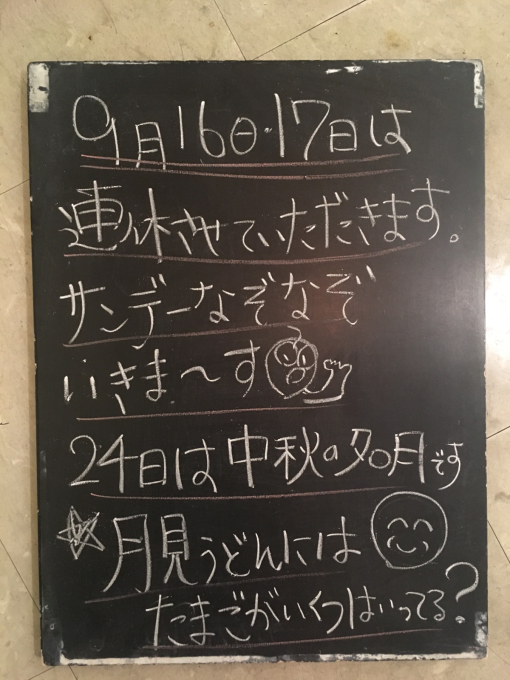 9月16日・17日は
連休させていただきます。
サンデーなぞなぞ
いきま〜す
24日は中秋の名月です
☆月見うどんには
たまごがいくつはいってる?